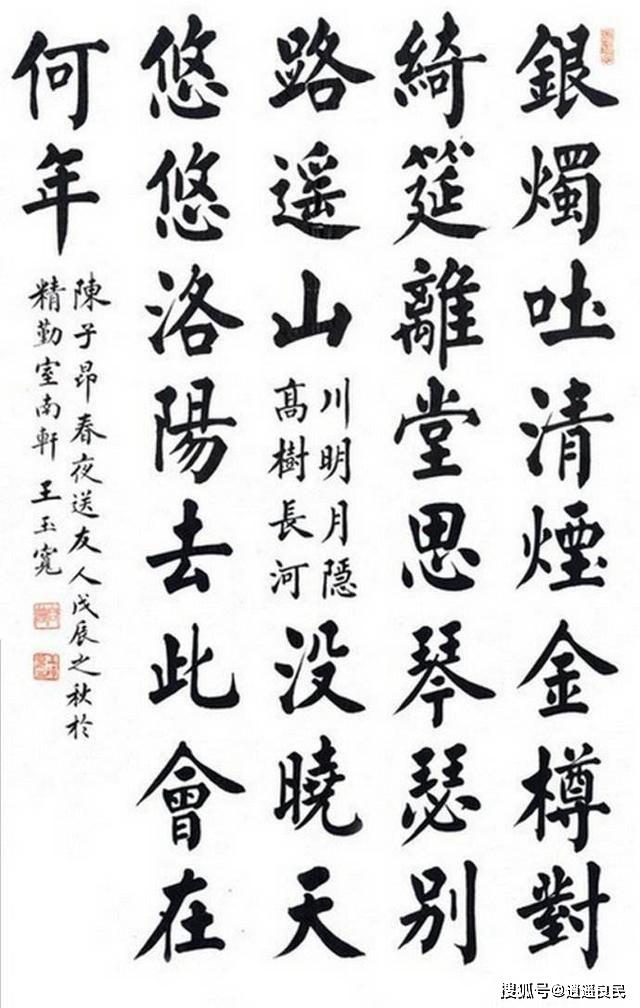 銀燭吐清煙金樽對
綺筵離堂思琴瑟别
路遥山
川明月隱
髙樹長河
没曉天
悠悠洛陽去此會在
何年
陳子昂春夜送友人戊辰之秋於
精勤室南軒王玉寬
搜狐号@逍遥良民